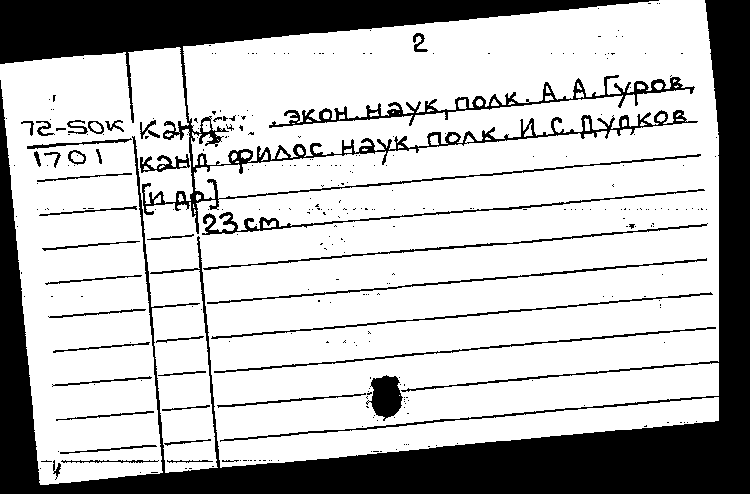 2
72-SOK канд. экон. наук, полк. А.А.Гуров,
1701 канд. филос. наук, полк. И.С.Дудков
[и др.]
23 cm.